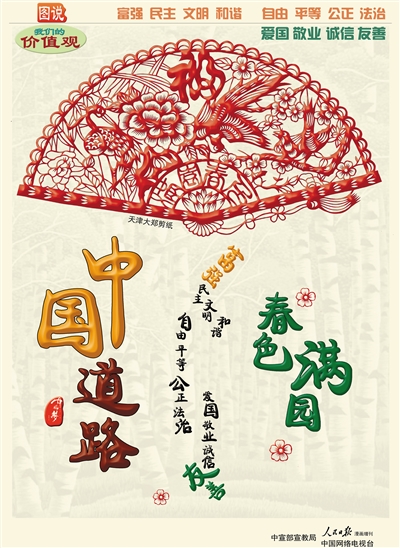 图说
富强 民主 文明 和谐 自由 平等 公正 法治
我们的
价值观
爱国 敬业 诚信 友善
福
春色满园
天津大郑剪纸
中国
道路
富强
民主文明
和谐
自由平等
公正法治
爱国敬业诚信
友善
春色
满园
中宣部宣教局 人民日报 漫画增刊
中国网络电视台